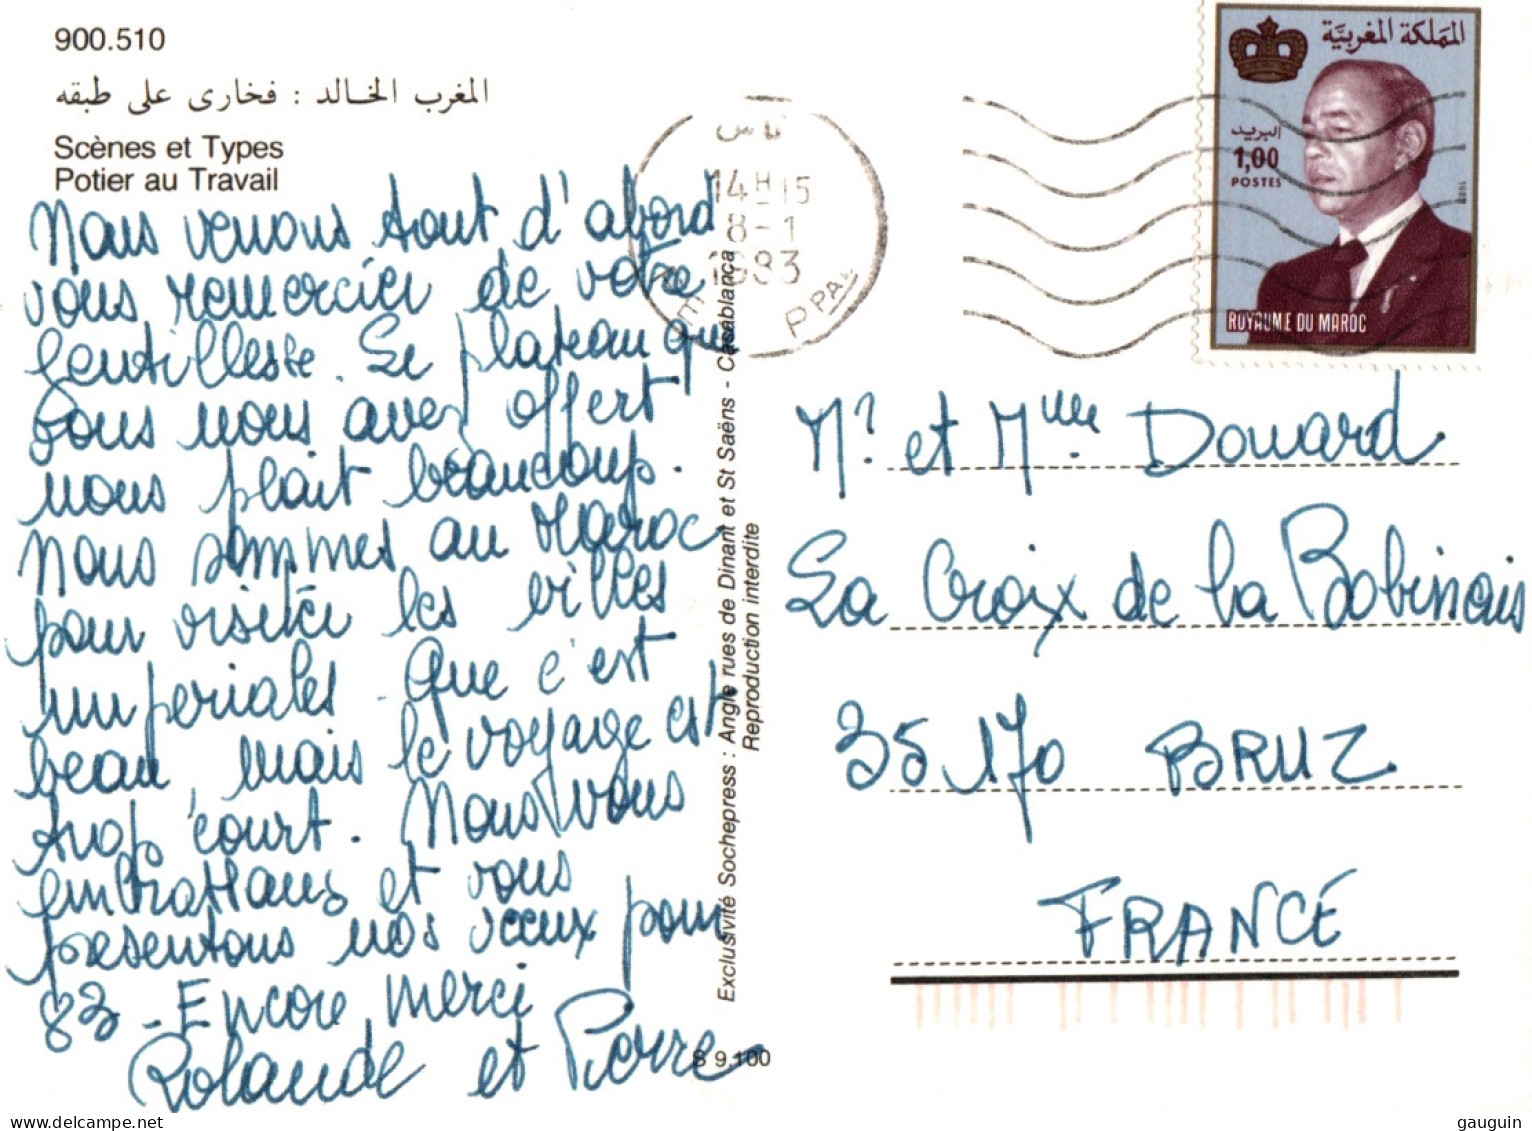 900.510
المغرب الخالد : فخارى على طبقه
Scènes et Types
Potier au Travail
Nous venons tout d'abord
vous remercier de votre
gentillesse. Le plateau que
vous nous avez offert
nous plait beaucoup.
Nous sommes au Maroc
pour visiter les villes
impériales. Que c'est
beau, mais le voyage est
trop court. Nous vous
embrassons et vous
présentons nos voeux pour
83 - Encore merci
Rolande et Pierre
Exclusivité Sochepress : Angle rues de Dinant et St Saëns - Casablanca
Reproduction interdite
S 9.100
فاس
14H15
8-1
1983
PPAL
المملكة المغربية
البريد
1,00
POSTES
ROYAUME DU MAROC
Mr et Mme Douard
La Croix de la Bobinais
35170 BRUZ
FRANCE
gauguin